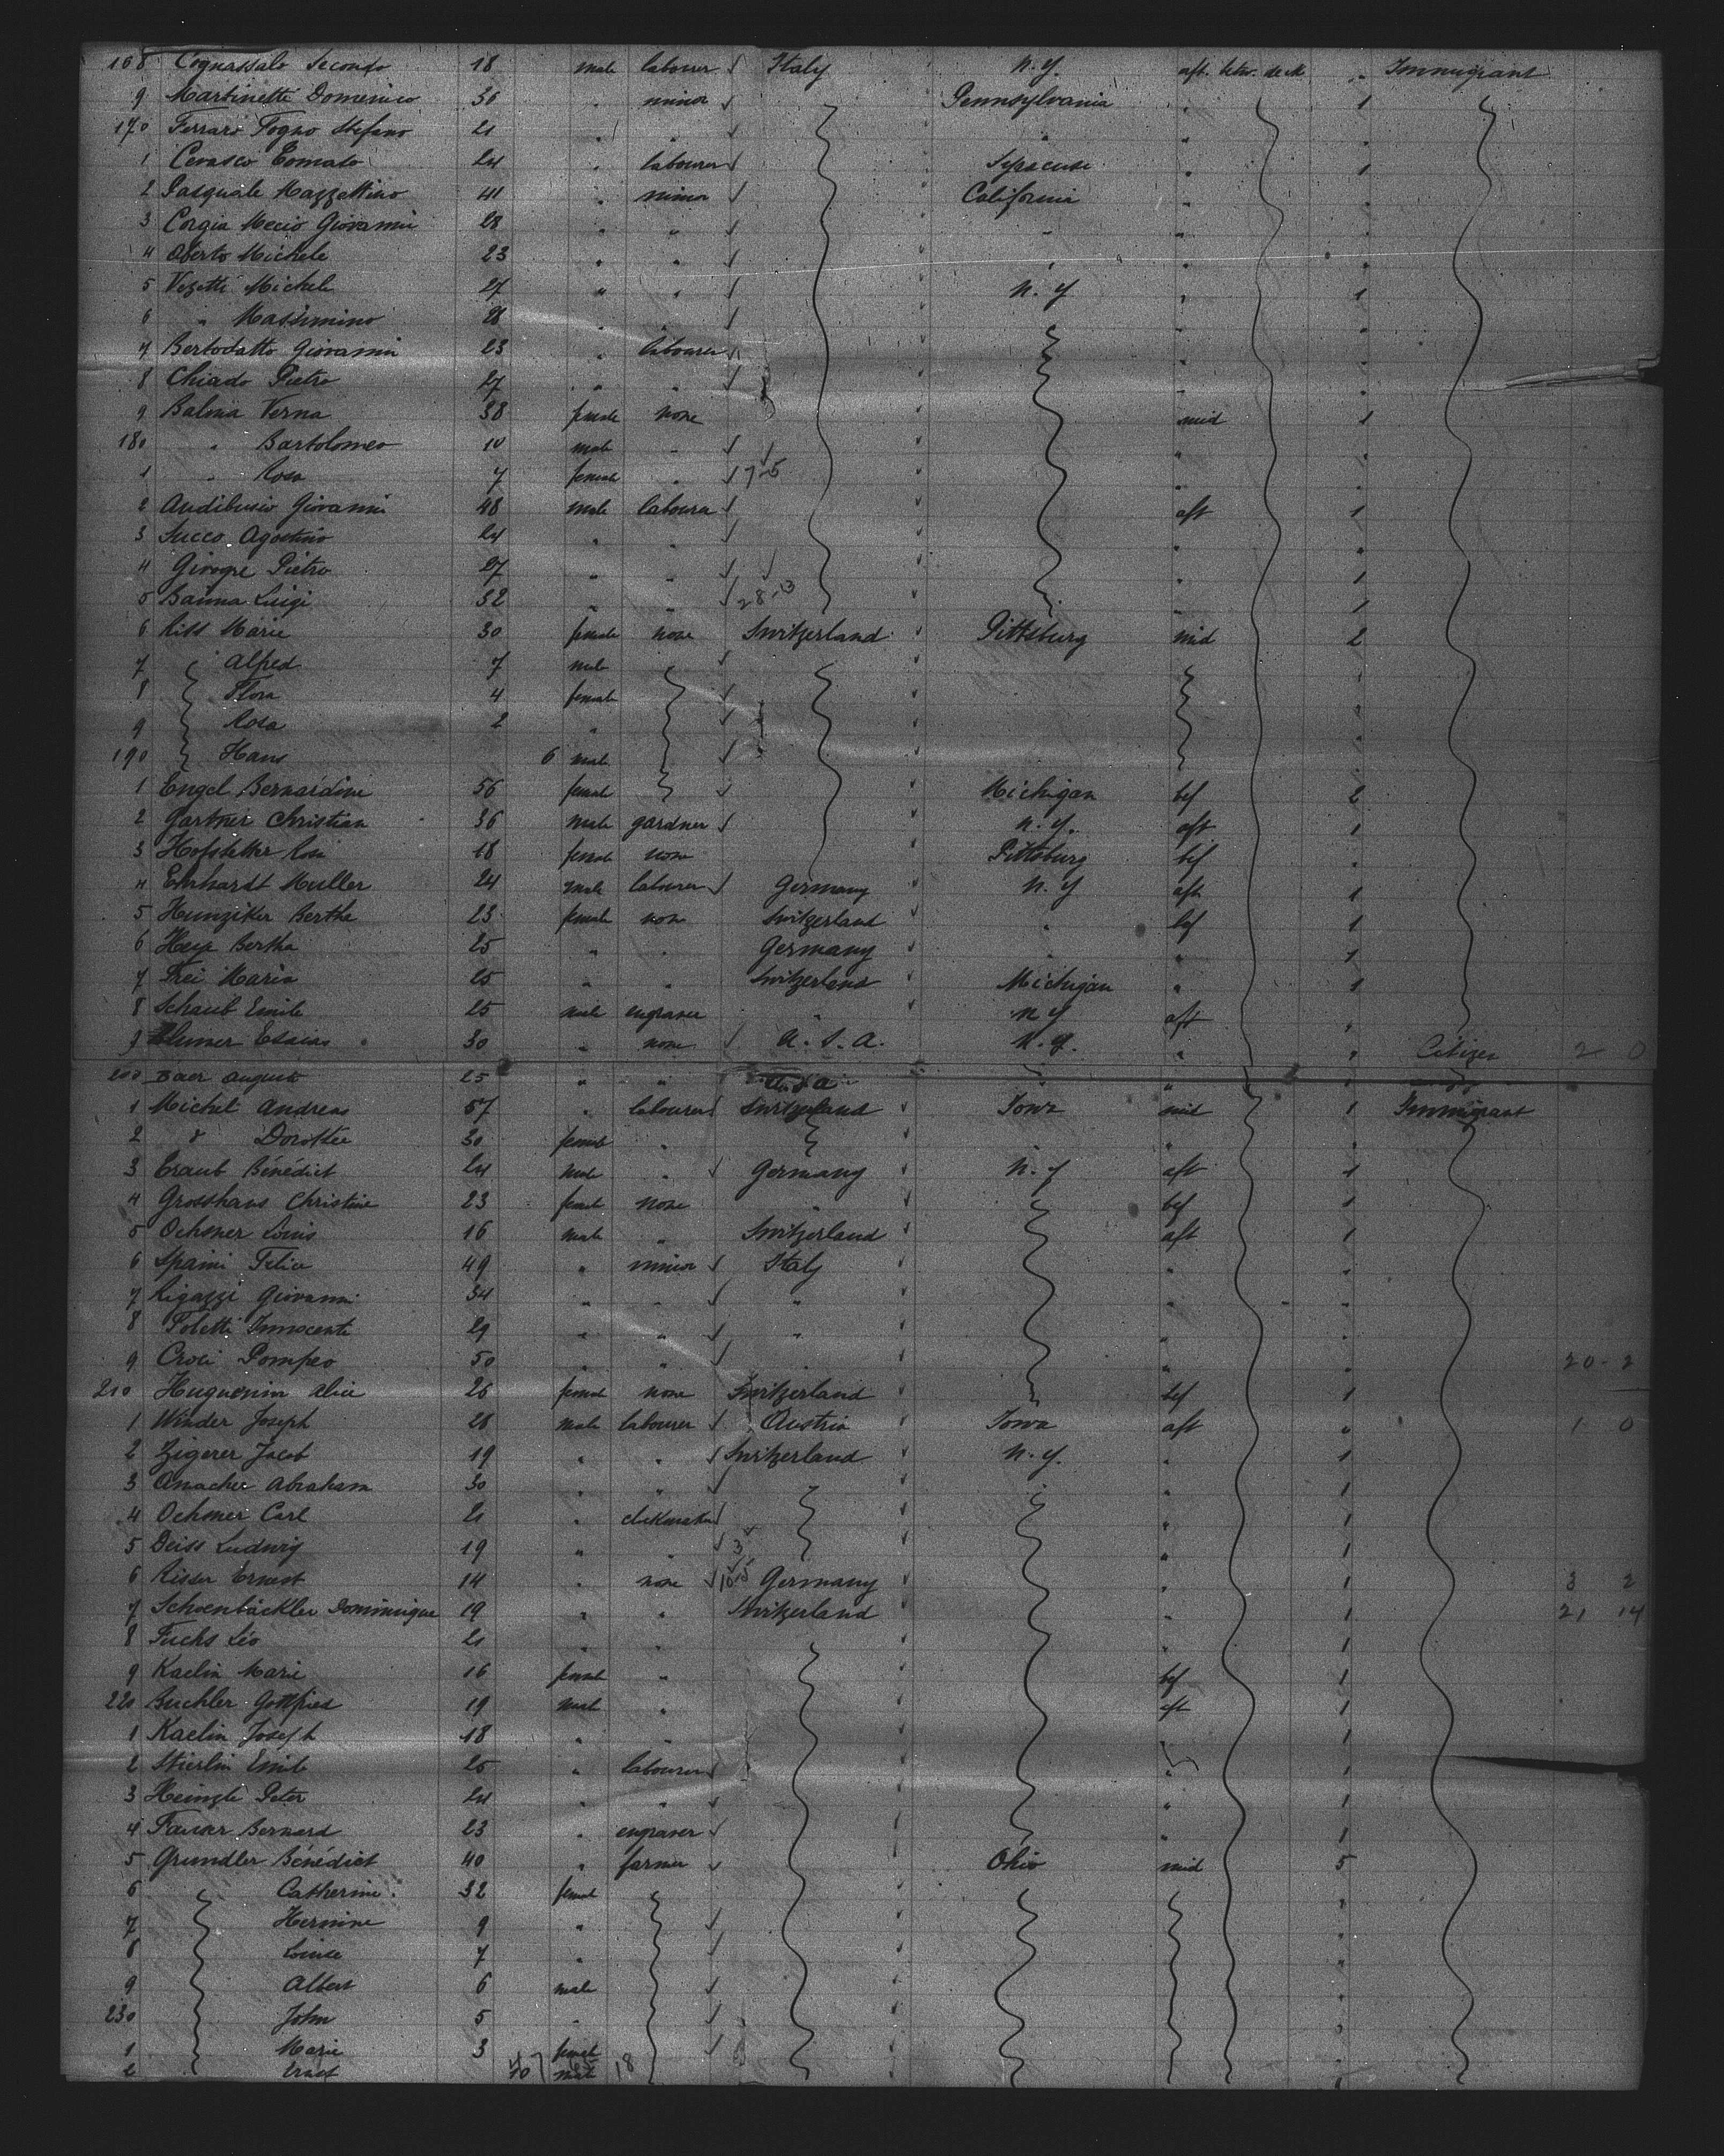 168 Cognassale Secondo 18 male labourer Italy N.Y. aft. betw. deck " Immigrant
9 Martinetti Domenico 36 " minor Pennsylvania " 1
170 Ferrari Togno Stefano 21 " " " "
1 Cerasco Tomaso 24 " labourer Syracuse " 1
2 Pasquale Mazzettino 41 " minor California " "
3 Corgia Mecio Giovanni 28 " " " " "
4 Oberto Michele 23 " " " " "
5 Vezetti Michele 27 " " N.Y " 1
6 " Massimino 28 " " " "
7 Bertodatto Giovanni 23 " labourer " "
8 Chiado Pietro 27 " " " "
9 Balma Verna 38 female none mid 1
180 " Bartolomeo 10 male " " "
1 " Rosa 7 female " 7-5 " "
2 Audibusio Giovanni 48 male labourer aft 1
3 Succo Agostino 24 " " " "
4 Girogre Pietro 27 " " " 1
5 Banna Luigi 32 " " 28-13 " 1
6 Riss Marie 30 female none Switzerland Pittsburg mid 2
7 Alfred 7 male "
8 Flora 4 female "
9 Rosa 2 " "
190 Hans 6 male "
1 Engel Bernardine 56 female Michigan bef 2
2 Gartner Christian 36 male gardner N.Y. aft 1
3 Hofstetter Rosi 18 female none Pittsburg bef "
4 Ehrhardt Muller 24 male labourer Germany N.Y aft 1
5 Hunziker Bertha 23 female none Switzerland " bef 1
6 Heyz Bertha 25 " " Germany " " 1
7 Frei Maria 25 " " Switzerland Michigan " 1
8 Schaub Emile 25 male engraver " N.Y aft "
9 Blumer Esaias 30 " none U.S.A. N.Y. " " Citizen 2 0
200 Baer August 25 " " U.S.A. " " 1
1 Michel Andreas 57 " labourer Switzerland Iowa mid 1 Immigrant
2 " Dorothee 30 female " " "
3 Traub Bénédict 24 male " Germany N.Y aft 1
4 Grosshans Christine 23 female none " bef 1
5 Ochsner Louis 16 male " Switzerland aft 1
6 Spaini Felice 49 " minor Italy " "
7 Rigazzi Giovanni 34 " " " " "
8 Foletti Innocente 29 " " " " "
9 Croci Pompeo 50 " " " " " 20-2
210 Huguenin Alice 26 female none Switzerland bef 1
1 Winder Joseph 28 male labourer Austria Iowa aft " 1 0
2 Zigerer Jacob 19 " " Switzerland N.Y. " 1
3 Amacher Abraham 30 " " " 1
4 Ochsner Carl 21 " clokmaker " 1
5 Deiss Ludwig 19 " " 3 " 1
6 Risser Ernest 14 " none 10-5 Germany " 1 3 2
7 Schoenbächler Dominique 19 " " Switzerland " 1 21 14
8 Fuchs Léo 21 " " " 1
9 Kaelin Marie 16 female " bef 1
220 Buchler Gottfried 19 male " aft 1
1 Kaelin Joseph 18 " " " 1
2 Stierlin Emile 25 " labourer " 1
3 Heinzle Peter 24 " " " 1
4 Fauser Bernard 23 " engraver " 1
5 Grundler Bénédict 40 " farmer Ohio mid 5
6 Catherine 32 female "
7 Hermine 9 " "
8 Louise 7 " "
9 Albert 6 male "
230 John 5 " "
1 Marie 3 female "
2 Ernest male 18 "